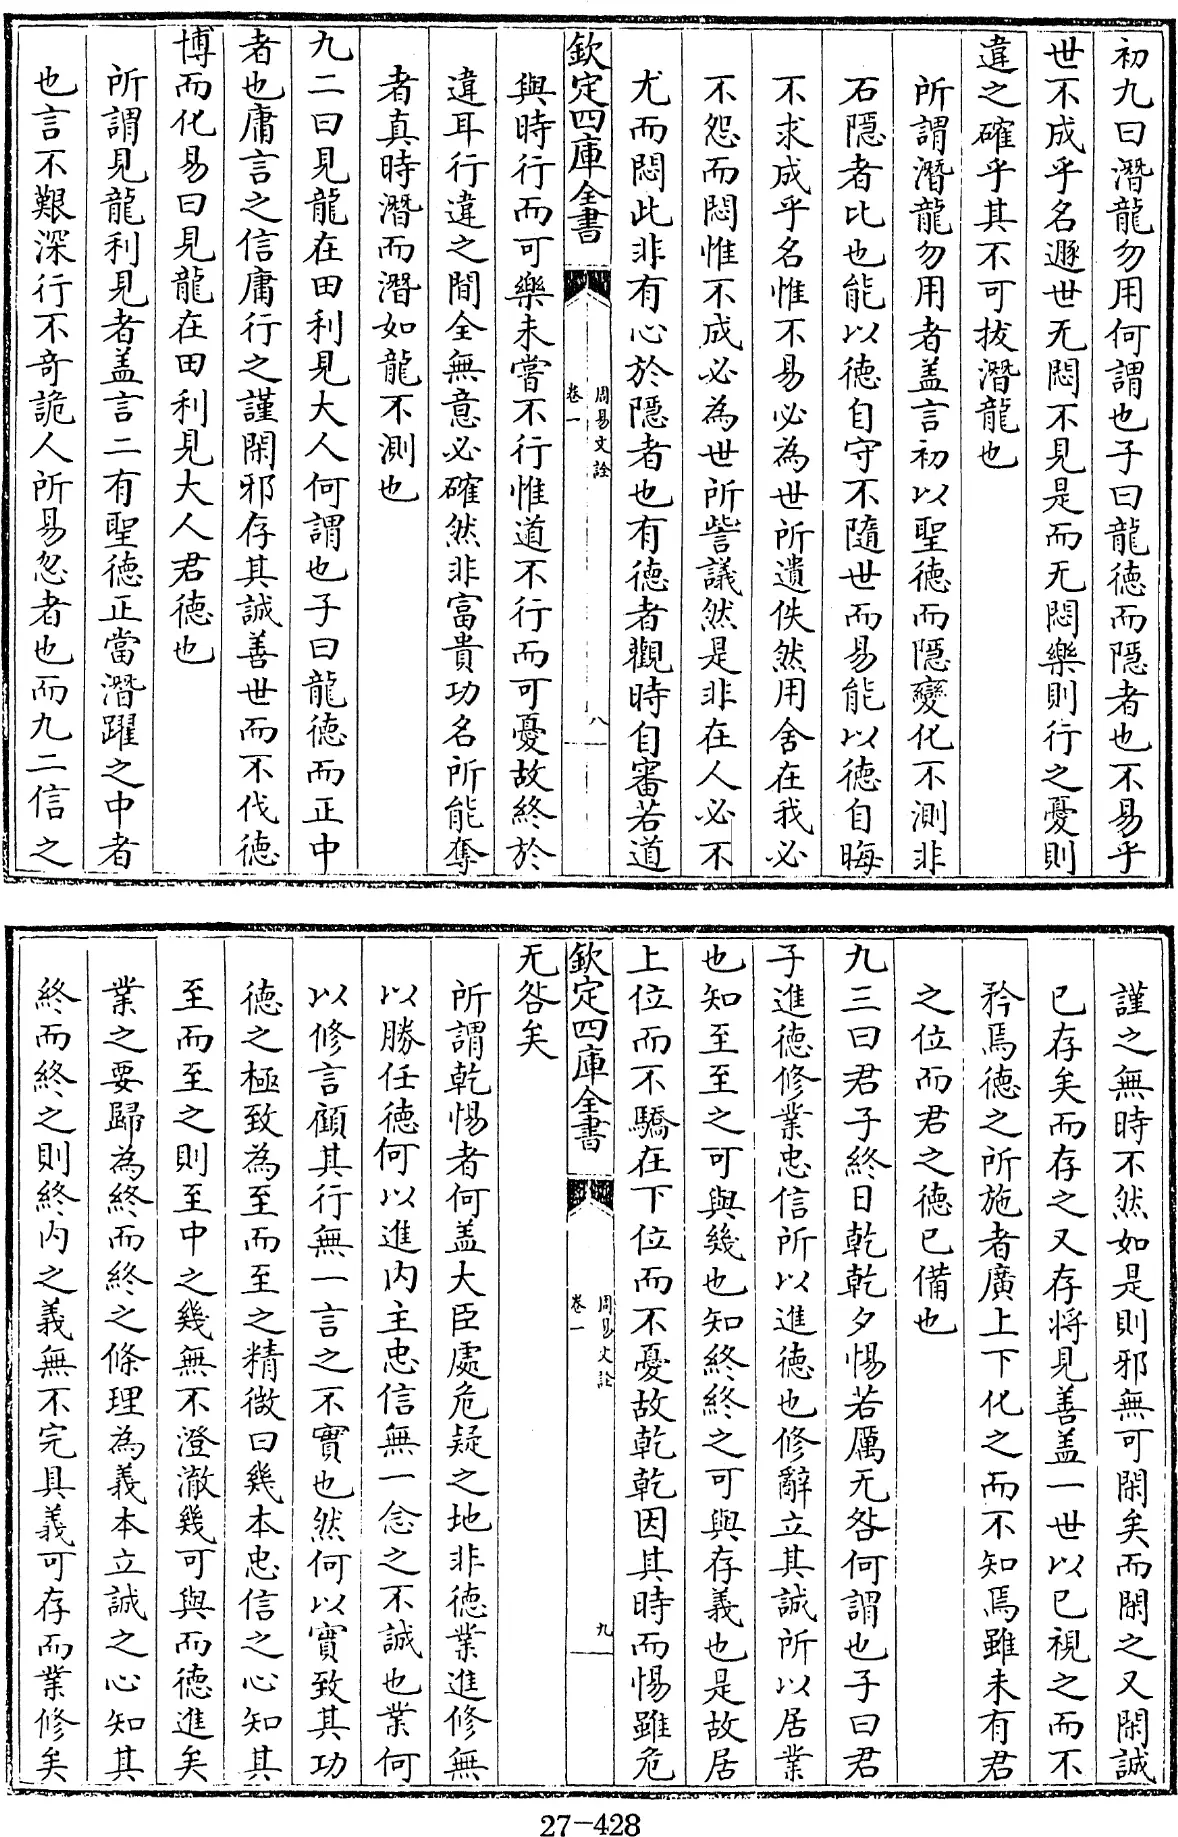 初九曰潛龍勿用何謂也子曰龍德而隱者也不易乎
世不成乎名遯世无悶不見是而无悶樂則行之憂則
違之確乎其不可拔潛龍也
所謂潛龍勿用者盖言初以聖德而隱變化不測非
石隱者比也能以德自守不隨世而易能以德自晦
不求成乎名惟不易必為世所遺佚然用舍在我必
不怨而悶惟不成必為世所訾議然是非在人必不
尤而悶此非有心於隱者也有德者觀時自審若道
欽定四庫全書
周易文詮
卷一
八
與時行而可樂未嘗不行惟道不行而可憂故終於
違耳行違之間全無意必確然非富貴功名所能奪
者真時潛而潛如龍不測也
九二曰見龍在田利見大人何謂也子曰龍德而正中
者也庸言之信庸行之謹閑邪存其誠善世而不伐德
博而化易曰見龍在田利見大人君德也
所謂見龍利見者盖言二有聖德正當潛躍之中者
也言不艱深行不奇詭人所易忽者也而九二信之
謹之無時不然如是則邪無可閑矣而閑之又閑誠
已存矣而存之又存將見善盖一世以已視之而不
矜焉德之所施者廣上下化之而不知焉雖未有君
之位而君之德已備也
九三曰君子終日乾乾夕惕若厲无咎何謂也子曰君
子進德修業忠信所以進德也修辭立其誠所以居業
也知至至之可與幾也知終終之可與存義也是故居
上位而不驕在下位而不憂故乾乾因其時而惕雖危
欽定四庫全書
周易文詮
卷一
九
无咎矣
所謂乾惕者何盖大臣處危疑之地非德業進修無
以勝任德何以進內主忠信無一念之不誠也業何
以修言顧其行無一言之不實也然何以實致其功
德之極致為至而至之精微曰幾本忠信之心知其
至而至之則至中之幾無不澄澈幾可與而德進矣
業之要歸為終而終之條理為義本立誠之心知其
終而終之則終內之義無不完具義可存而業修矣
27-428